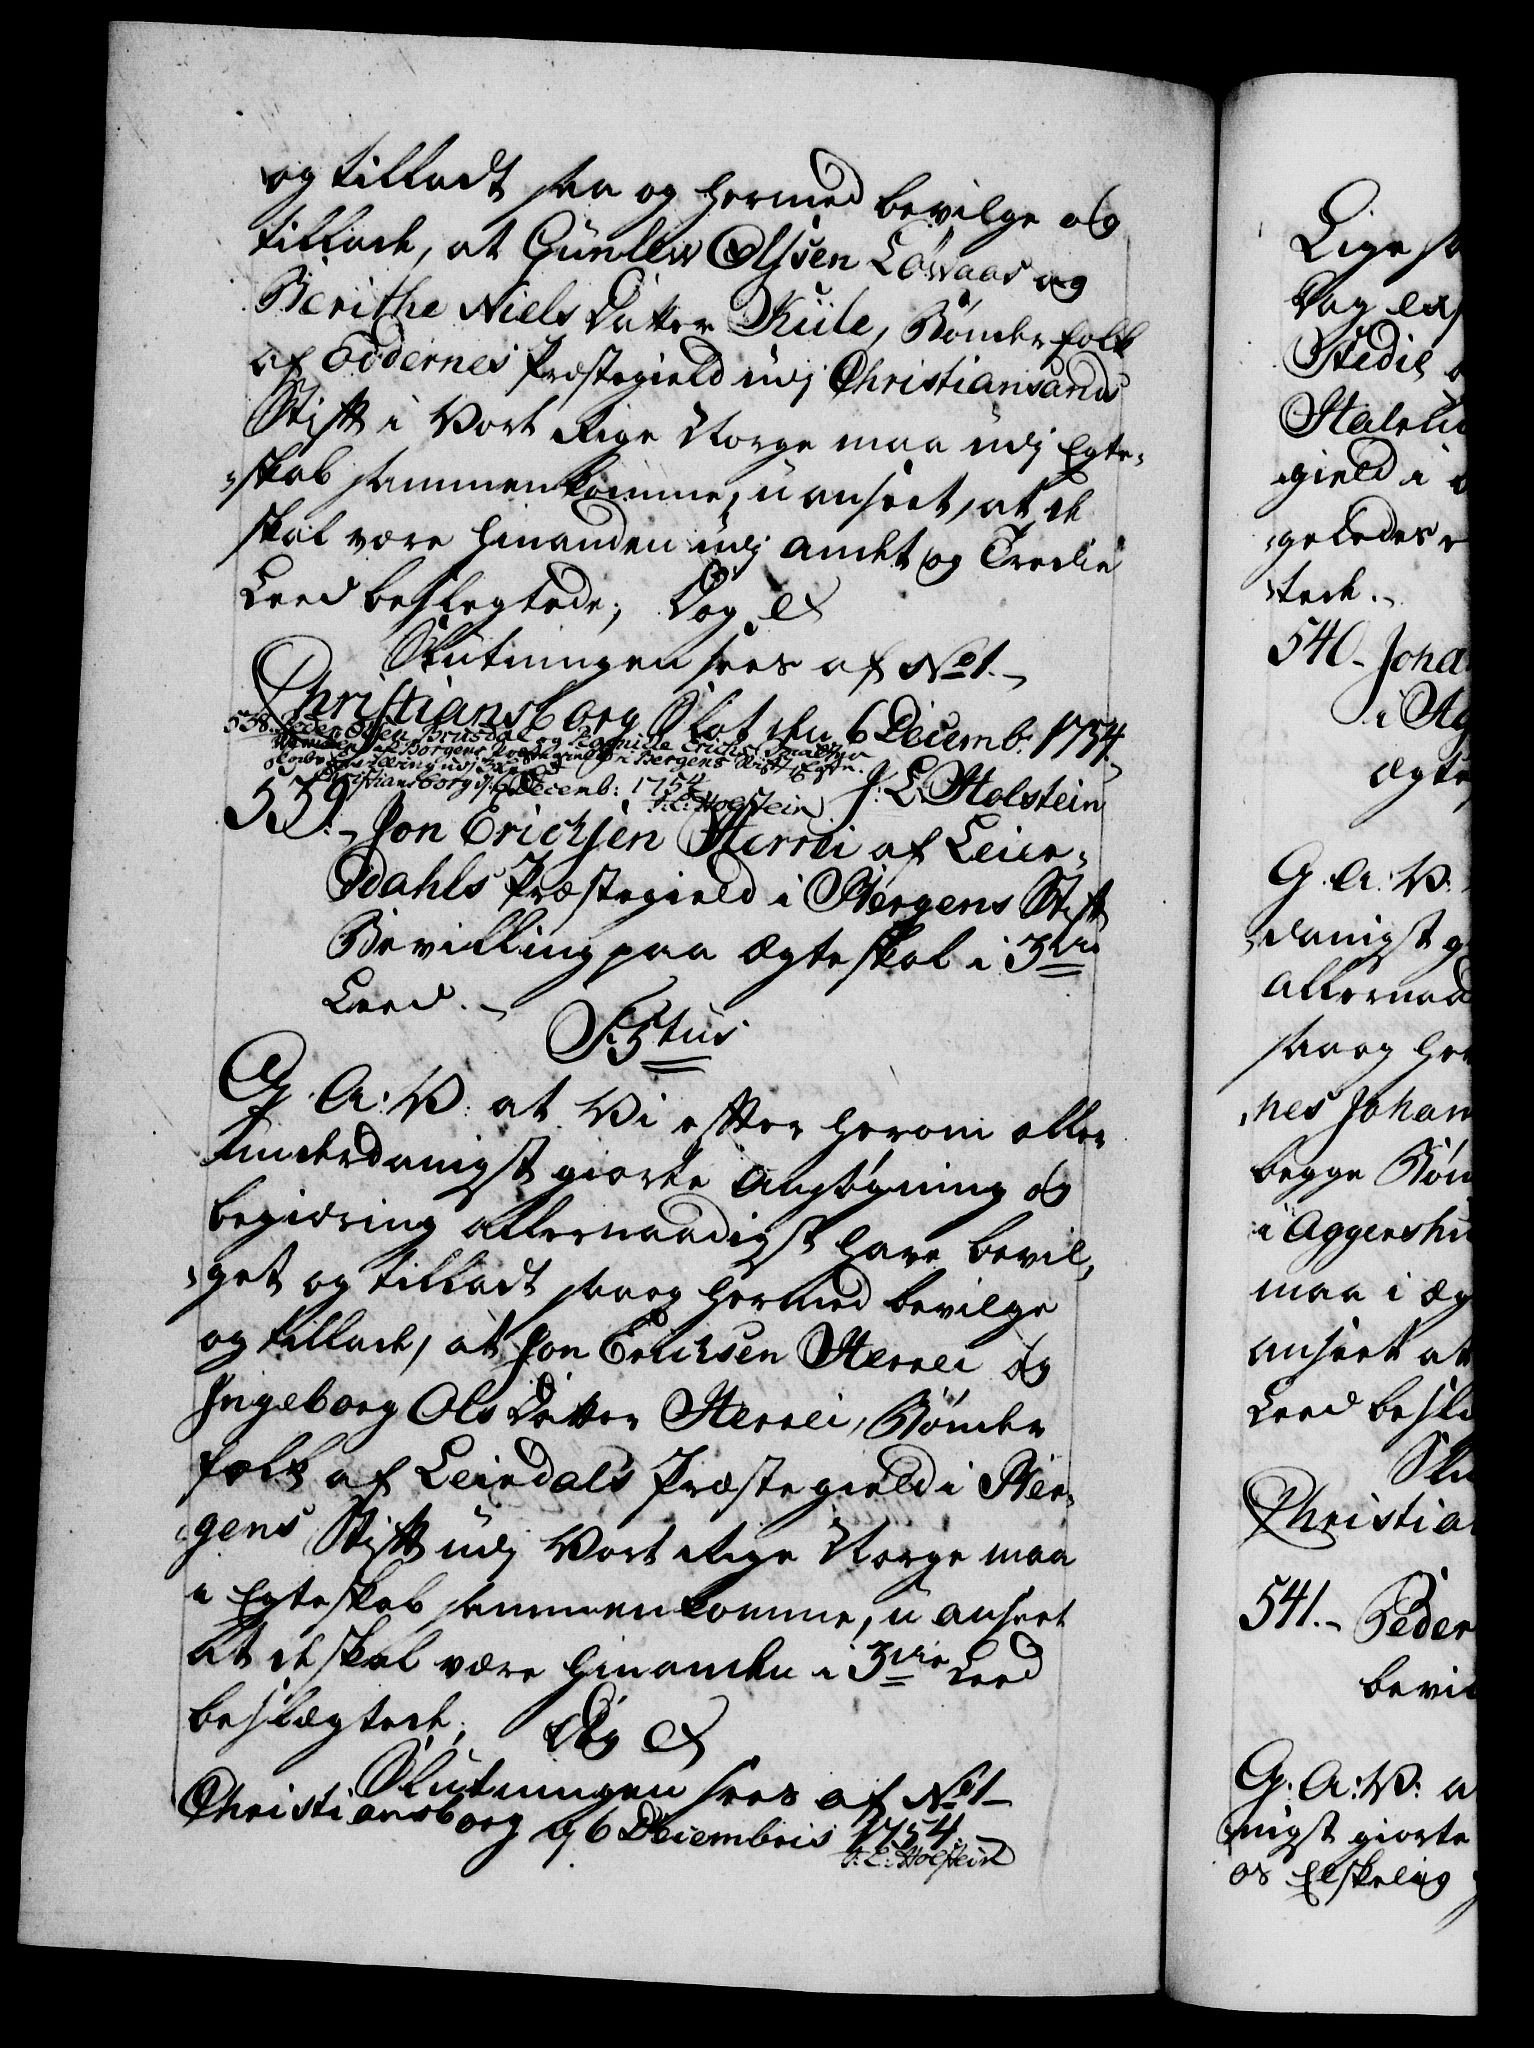 og tilladt saa og hermed bevilge og
tillade, at Gunlew Olsen Løvaas og
Berithe Niels Datter Kule, Bønderfolk
af Oddernes Præstegield udj Christiansands
Stift i Vort Rige Norge maa udj Egte-
skab sammenkomme, uanseet, at de
skal være hinanden udj andet og Tredie
Leed beslegtede; Dog &
Slutningen sees af No 1.
Christiansborg Slot den 6 Decemb: 1754.
538. Peder Olsen Brusdal og Pernille Erichsd
af Borgens Præstegield i Bergens Stift Egte-
udj
Christiansborg d. 6 Decemb: 1754
J. L. Holstein
J. L. Holstein
539. Jon Erichsen Sterrei af Leier-
dahls Præstegield i Bergens Stift
Bevilling paa Ægteskab i 3die
Leed.
F: 5tus
G. A: V: at Vi efter herom aller
underdanigst giorte Ansøgning og
begiæring allernaadigst have bevil-
get og tilladt saa og hermed bevilge
og tillade, at Jon Erichsen Sterrei og
Ingeborg Ols Datter Sterrei, Bønder
folk af Leirdals Præstegield i Ber-
gens Stift udj Vort Rige Norge maa
i Egteskab sammenkomme, uanseet
at de skal være hinanden i 3die Leed
beslægtede; Dog &
Slutningen sees af No 1
Christiansborg d. 6 Decembris 1754.
J. L. Holstein
Lige s
Dog ex
Stedil
Stalsli
gield i
geledes
tede.
540. Joha
i Ag
ægte
G. A: V:
danigst g
allernaad
saa og her
nes Johan
begge Bøn
i Aggershu
maa i æg
anseet at
Leed besle
Slu
Christia
541. Peder
bevil
G. A: V: a
nigst giorte
os Elskelig